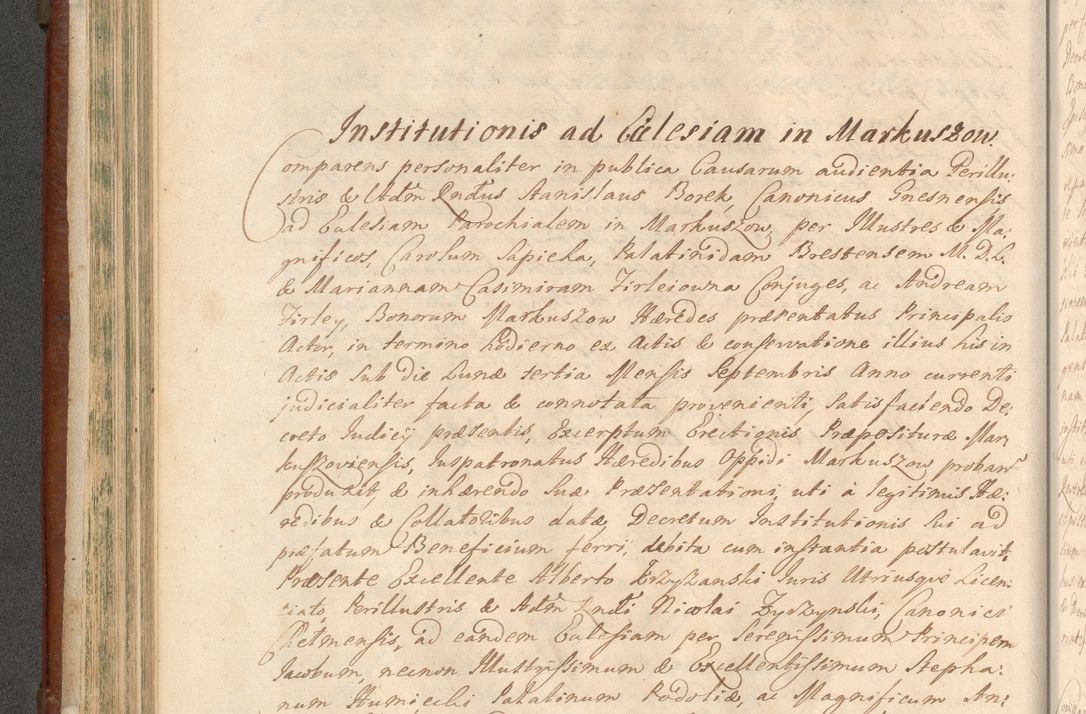 Institutionis ad Ecclesiam in Markuszow.
Comparens personaliter in publica Causarum audientia Perillu-
stris & Adm Rndus Stanislaus Borek, Canonicus Gnesnensis
ad Eclesiam Parochialem in Markuszow, per Illustres & Ma-
gnificos, Carolum Sapieha, Palatinidam Brestensem M. D. L.
& Mariannam Casimiram Firleiowna Conjuges, ac Andream
Firley, Bonorum Markuszow Hæredes præsentatus Principalis
Actor, in termino hodierno ex Actis & conservatione illius his in
Actis sub die Lunæ tertia Mensis Septembris Anno currenti
judicialiter facta & connotata provenienti, satisfaciendo De-
creto Judicij præsentis, Excerptum Erectionis Præpositura Mar-
kuszoviensis, Juspatronatus Hæredibus Oppidi Markuszow proban
produxit, & inhærendo suæ Præsentationi, uti à legitimis Hæ-
redibus & Collatoribus datæ, Decretum Institutionis sui ad
præfatum Beneficium ferri, debita cum instantia postulavit.
Præsente Excellente Alberto Trzyzanski Juris Utriusque Licen-
ciato, Perillustris & Adm Rndi Nicolai Zyszynski, Canonici
Chelmensis, ad eandem Eclesiam per Serenissimum Principem
Jacobum, necnon Illustrissimum & Excellentissimum Stepha-
num Humiecki Palatinum Podoliæ, ac Magnificum An-